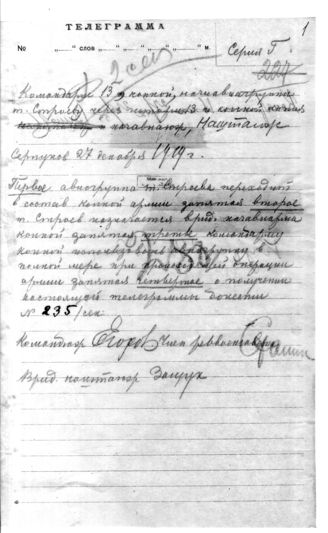 1
ТЕЛЕГРАММА
№ „ “ слов „ “ „ “ „ “ м Серия Г.
227
Командарм 13 и конной, начавиагруппа
т. Строеву через штарм 13 и конной копия
начавиаюж, Наштаюж
Серпухов 27 декабря 1919 г.
Первое авиогруппа т. Строева переходит
в состав конной армии запятая второе
т. Строев назначается врид. начавиарма
конной запятая третье командарму
конной использовать авиагруппу в
полной мере при происходящей операции
армии запятая четвертое о получении
настоящей телеграммы донести
№ 235/сек
Командюж Егоров Член реввоенсовета Сталин
Врид. наштаюр Защук